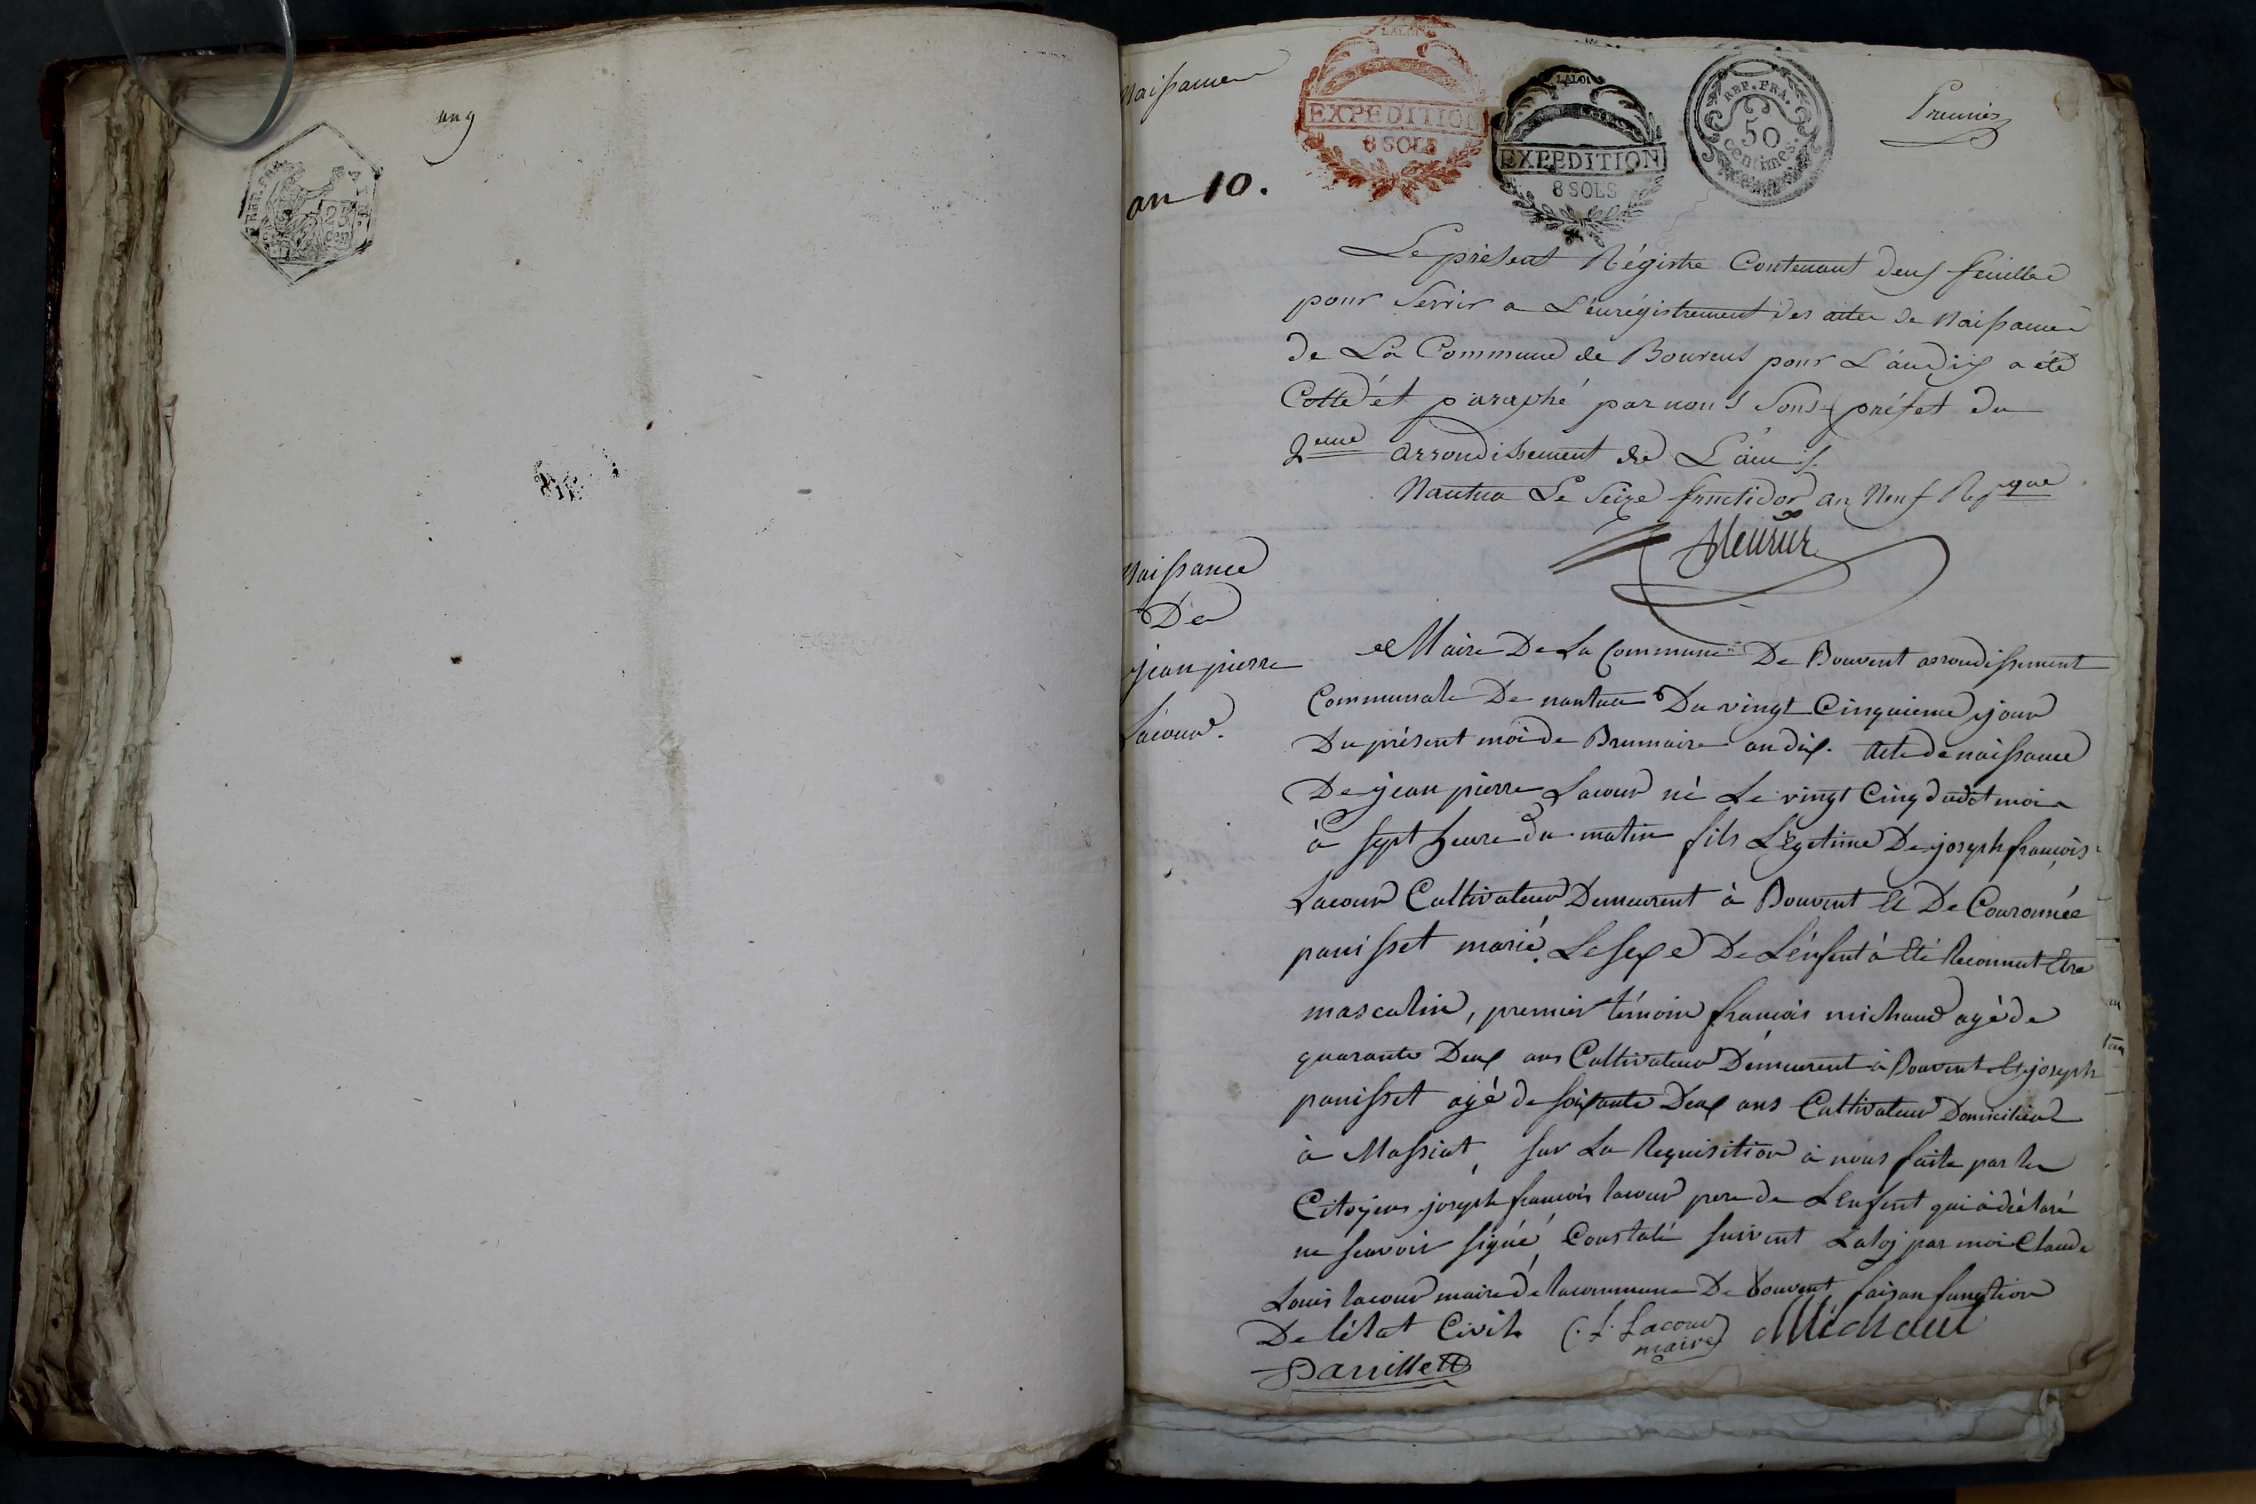 REP. FRA.
25
cen
Naissance
LA LOI
EXPEDITION
8 SOLS
LA LOI
EXPEDITION
8 SOLS
REP. FRA.
50
centimes.
Premier
an 10.
Le présent Régistre Contenant deux feuilles
pour Servir a L'enrégistrement des actes de Naissance
de La Commune de Bouvent pour L'an dix a été
Cotté et paraphé par nous Sous préfet du
2eme arrondissement de L'ain
Nantua Le Seize fructidor an Neuf
Naissance
De
jean pierre
Lacour.
Maire De La Commune De Bouvent arrondissement
Communale De nantua Du vingt Cinquieme jour
Du présent moi de Brumaire an dix. Acte de naissance
De jean pierre Lacour né Le vingt Cinq dudt moi
à sept heure du matin fils Légetime De joseph françois
Lacour Cultivateur Demeurent à Bouvent Et De Couronnée
panisset marié. Le sexe De L'énfent à Eté Reconnut Etre
masculin, premier témoin françois michaud agé de
quarante Deux ans Cultivateur Demeurent à Bouvent Et joseph
panisset agé de soixante Deux ans Cultivateur Domicilié
à Massiat, sur La Requisition à nous faite par le
Citoyens joseph françois lacour pere de L'Enfent qui à déclaré
ne scavoir signé, Constaté suivent La loj par moi Claude
Louis lacour maire de la commune De Bouvent faisan fonction
De l'état Civile C. L. Lacour
maire Michaut
Panisset